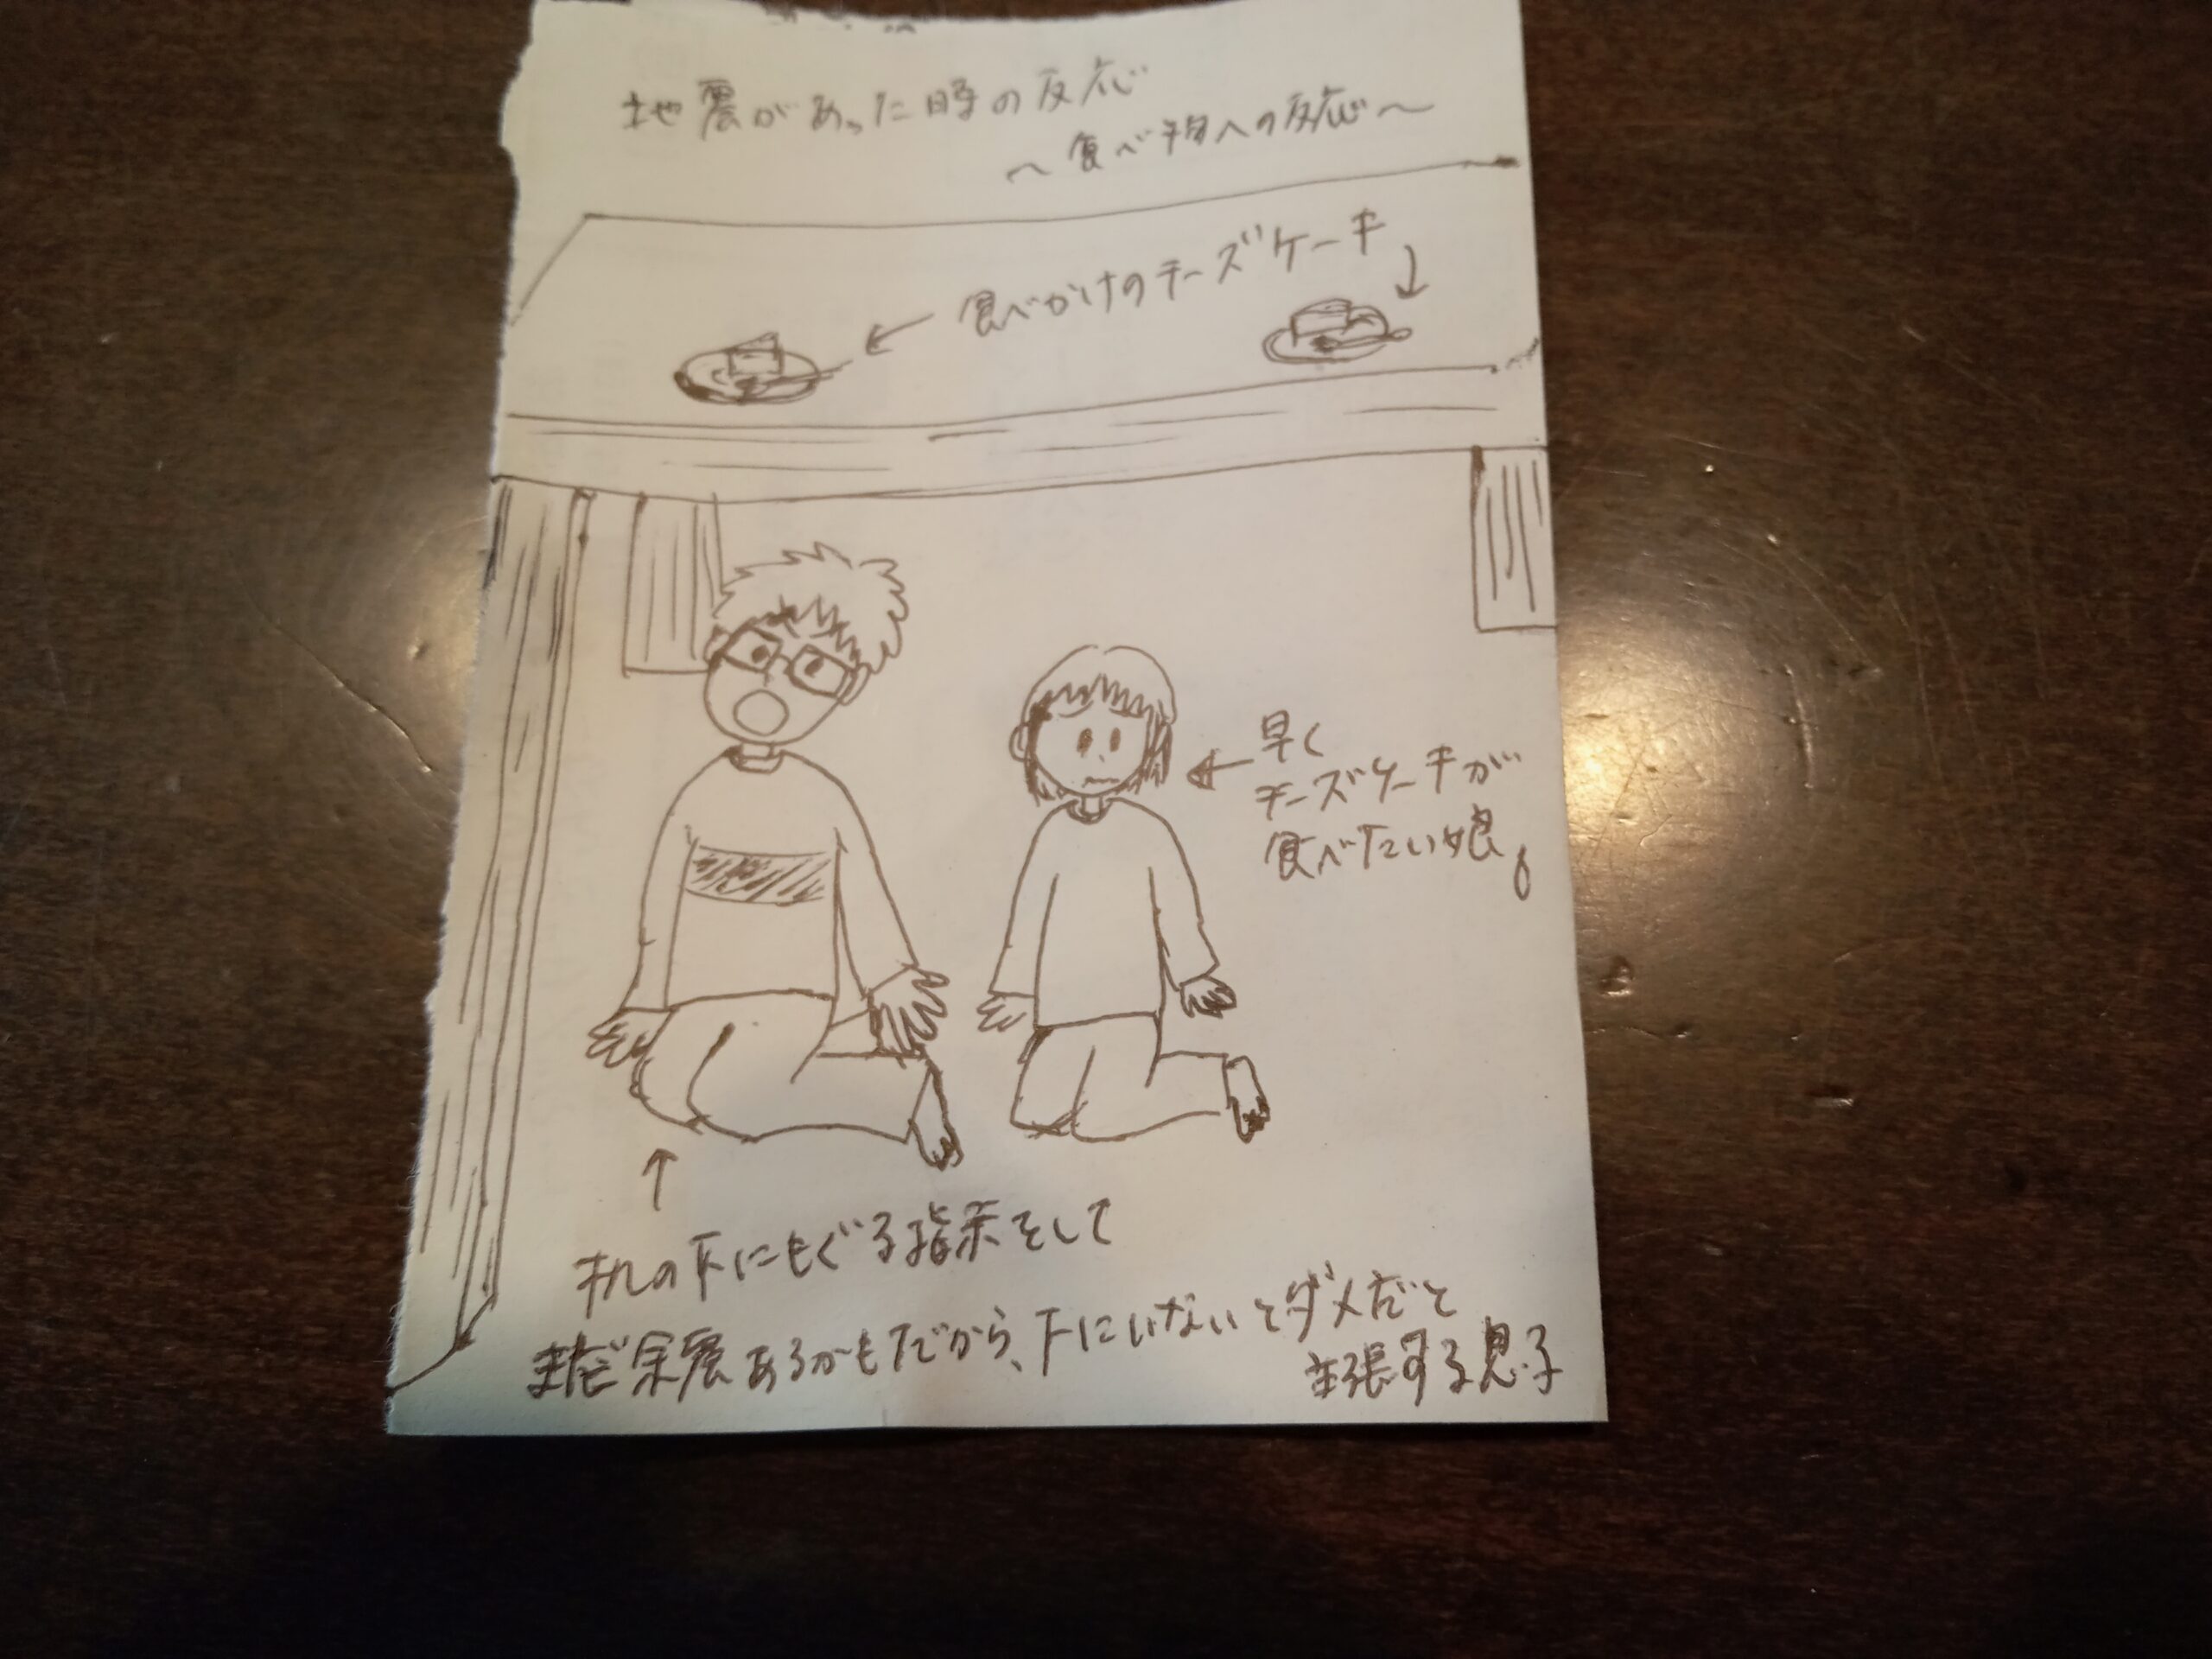 地震があった時の反応
～食べ物への反応～
食べかけのチーズケーキ
早く
チーズケーキが
食べたい娘。
机の下にもぐる指示をして
まだ余震あるかもだから、下にいないとダメだと
主張する息子